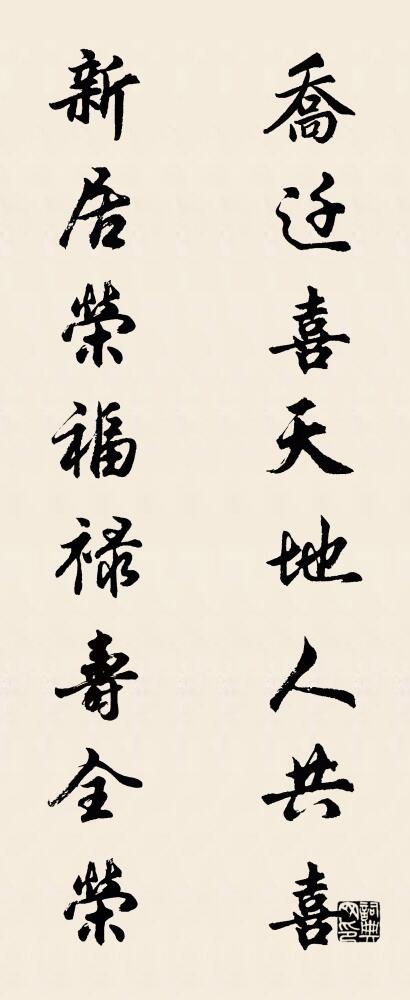 喬迁喜天地人共喜
新居榮福禄壽全榮